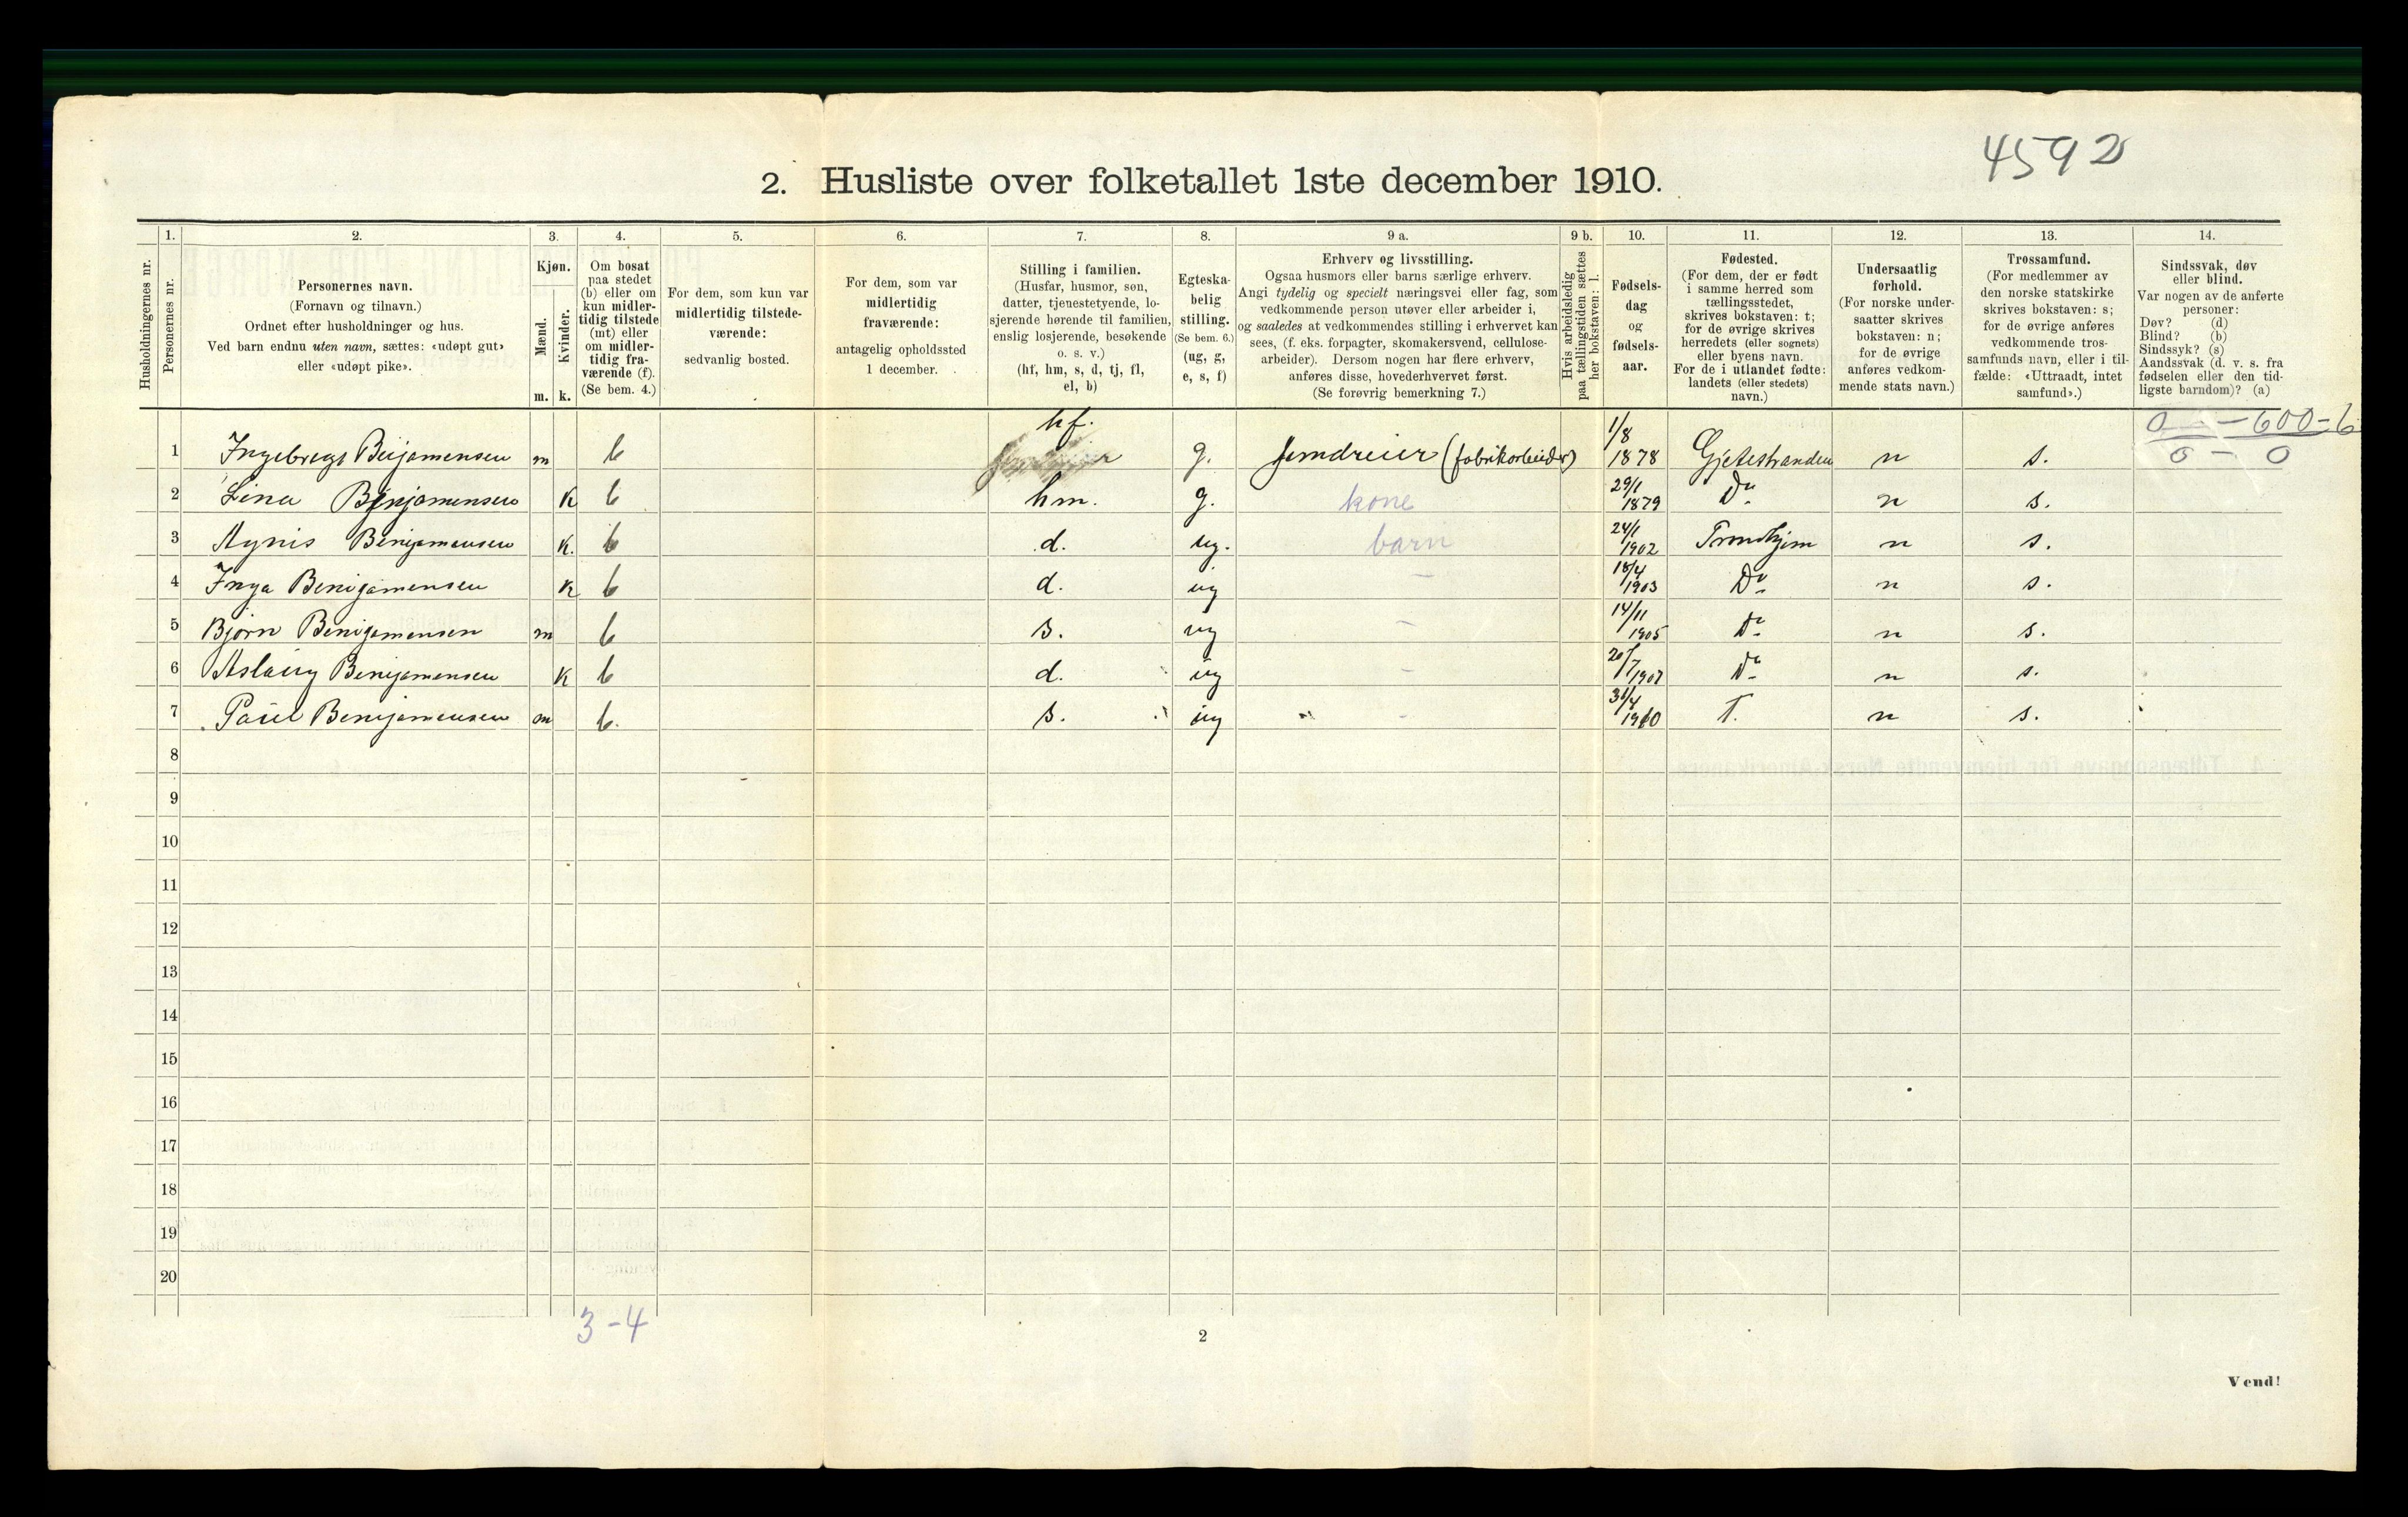 4592
2. Husliste over folketallet 1ste december 1910.
Husholdningernes nr.
1.
Personernes nr.
2.
Personernes navn.
(Fornavn og tilnavn.)
Ordnet efter husholdninger og hus.
Ved barn endnu uten navn, sættes: «udøpt gut»
eller «udøpt pike».
3.
Kjøn.
Mænd.
Kvinder.
m. k.
4.
Om bosat
paa stedet
(b) eller om
kun midler-
tidig tilstede
(mt) eller
om midler-
tidig fra-
værende (f).
(Se bem. 4.)
5.
For dem, som kun var
midlertidig tilstede-
værende:
sedvanlig bosted.
6.
For dem, som var
midlertidig
fraværende:
antagelig opholdssted
1 december.
7.
Stilling i familien.
(Husfar, husmor, søn,
datter, tjenestetyende, lo-
sjerende hørende til familien,
enslig losjerende, besøkende
o. s. v.)
(hf, hm, s, d, tj, fl,
el, b)
8.
Egteska-
belig
stilling.
(Se bem. 6.)
(ug, g,
e, s, f)
9 a.
Erhverv og livsstilling.
Ogsaa husmors eller barns særlige erhverv.
Angi tydelig og specielt næringsvei eller fag, som
vedkommende person utøver eller arbeider i,
og saaledes at vedkommendes stilling i erhvervet kan
sees, (f. eks. forpagter, skomakersvend, cellulose-
arbeider). Dersom nogen har flere erhverv,
anføres disse, hovederhvervet først.
(Se forøvrig bemerkning 7.)
9 b.
Hvis arbeidsledig
paa tællingstiden sættes
her bokstaven: l.
10.
Fødsels-
dag
og
fødsels-
aar.
11.
Fødested.
(For dem, der er født
i samme herred som
tællingsstedet,
skrives bokstaven: t;
for de øvrige skrives
herredets (eller sognets)
eller byens navn.
For de i utlandet fødte:
landets (eller stedets)
navn.)
12.
Undersaatlig
forhold.
(For norske under-
saatter skrives
bokstaven: n;
for de øvrige
anføres vedkom-
mende stats navn.)
13.
Trossamfund.
(For medlemmer av
den norske statskirke
skrives bokstaven: s;
for de øvrige anføres
vedkommende tros-
samfunds navn, eller i til-
fælde: «Uttraadt, intet
samfund».)
14.
Sindssvak, døv
eller blind.
Var nogen av de anførte
personer:
Døv? (d)
Blind? (b)
Sindssyk? (s)
Aandssvak (d. v. s. fra
fødselen eller den tid-
ligste barndom)? (a)
0 — 600-6
0 - 0
1 Ingebregt Benjamensen m b hf. g. Jerndreier (fabrikarbeider) 1/8 1878 Gjetestranden n s.
2 Lina Benjamensen K b hm. g. kone 29/1 1879 Do n s.
3 Agnis Benjamensen K. b d. ug. barn 24/1 1902 Trondhjem n s.
4 Inga Benjamensen K b d. ug — 18/4 1903 Do n s.
5 Bjørn Benjamensen m b s. ug — 14/11 1905 Do n s.
6 Aslaug Benjamensen K b d. ug - 20/7 1907 Do n s.
7 Paul Benjamensen m b. s. ug - 1910 T. n s.
8
9
10
11
12
13
14
15
16
17
18
19
20
3-4
2
Vend!